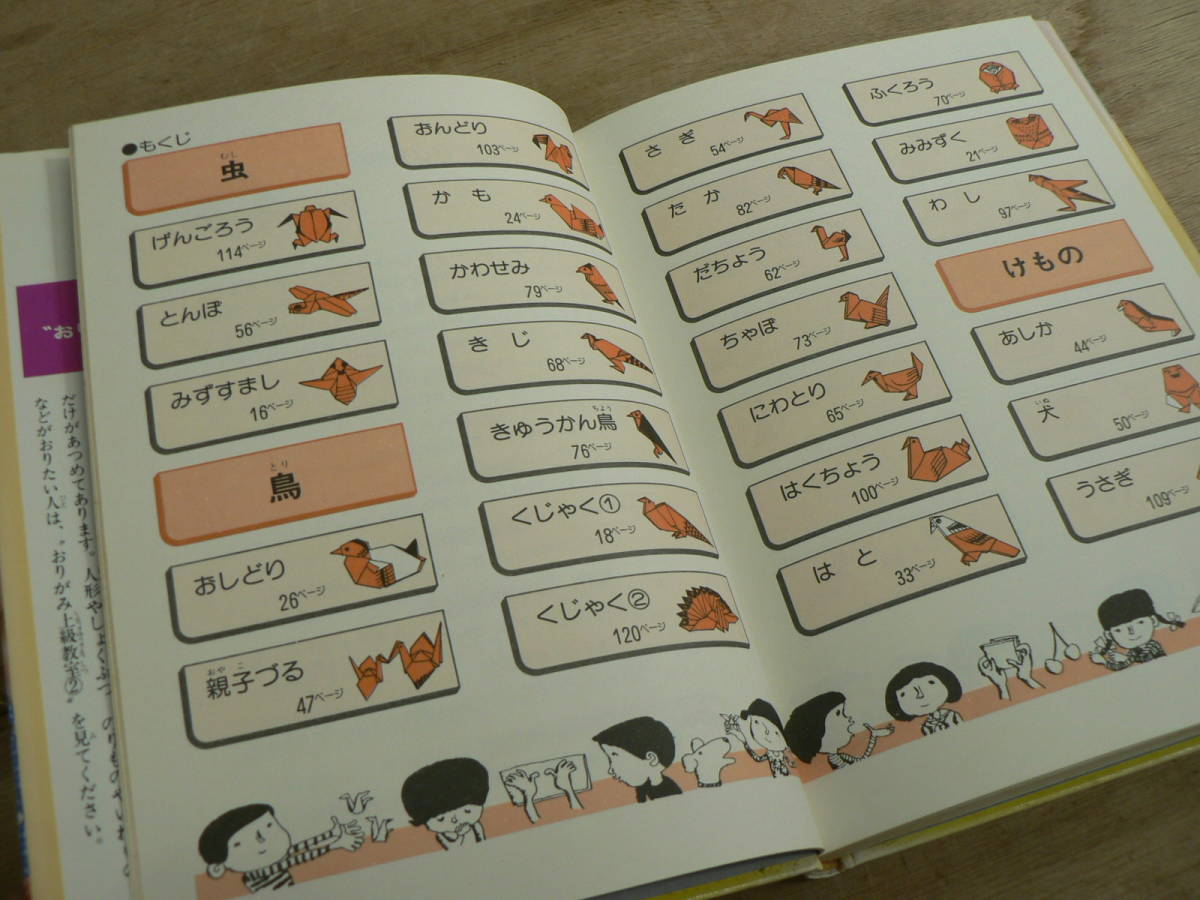 ●もくじ
虫
むし
げんごろう
114ページ
とんぼ
56ページ
みずすまし
16ページ
鳥
とり
おしどり
26ページ
親子づる
おやこ
47ページ
おんどり
103ページ
かも
24ページ
かわせみ
79ページ
きじ
68ページ
きゅうかん鳥
ちょう
76ページ
くじゃく①
18ページ
くじゃく②
120ページ
さぎ
54ページ
たか
82ページ
だちょう
62ページ
ちゃぼ
73ページ
にわとり
65ページ
はくちょう
100ページ
はと
33ページ
ふくろう
70ページ
みみずく
21ページ
わし
97ページ
けもの
あしか
44ページ
犬
いぬ
50ページ
うさぎ
109ページ
"お
だけがあつめてあります。人形やしょくぶつ
などがおりたい人は、"おりがみ上級教室②"を見てください。